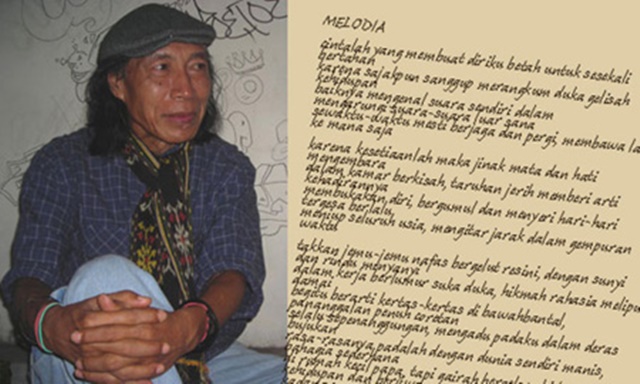 MELODIA
cintalah yang membuat diriku betah untuk sesekali
bertahan
karena sajakpun sanggup merangkum duka gelisah
kehidupan
baiknya mengenal suara sendiri dalam
mengarungi suara-suara luar sana
sewaktu-waktu mesti berjaga dan pergi, membawa la
ke mana saja
karena kesetiaanlah maka jinak mata dan hati
mengembara
dalam kamar berkisah, taruhan jerih memberi arti
kehadirannya
membukakan diri, bergumul dan menyeri hari-hari
tergesa berlalu
meniup seluruh usia, mengitar jarak dalam gempuran
waktu
takkan jemu-jemu nafas bergelut resini, dengan sunyi
dan rindu menyanyi
dalam kerja berlumur suka duka, hikmah rahasia melipu
damai
begitu berarti kertas-kertas di bawahbantal,
penanggalan penuh coretan
selalu sepenanggungan, mengadu padaku dalam deras
bujukan
rasa-rasanya padalah dengan dunia sendiri manis,
bahagia sederhana
di rumah kecil papa, tapi gairah
kehidupan dan